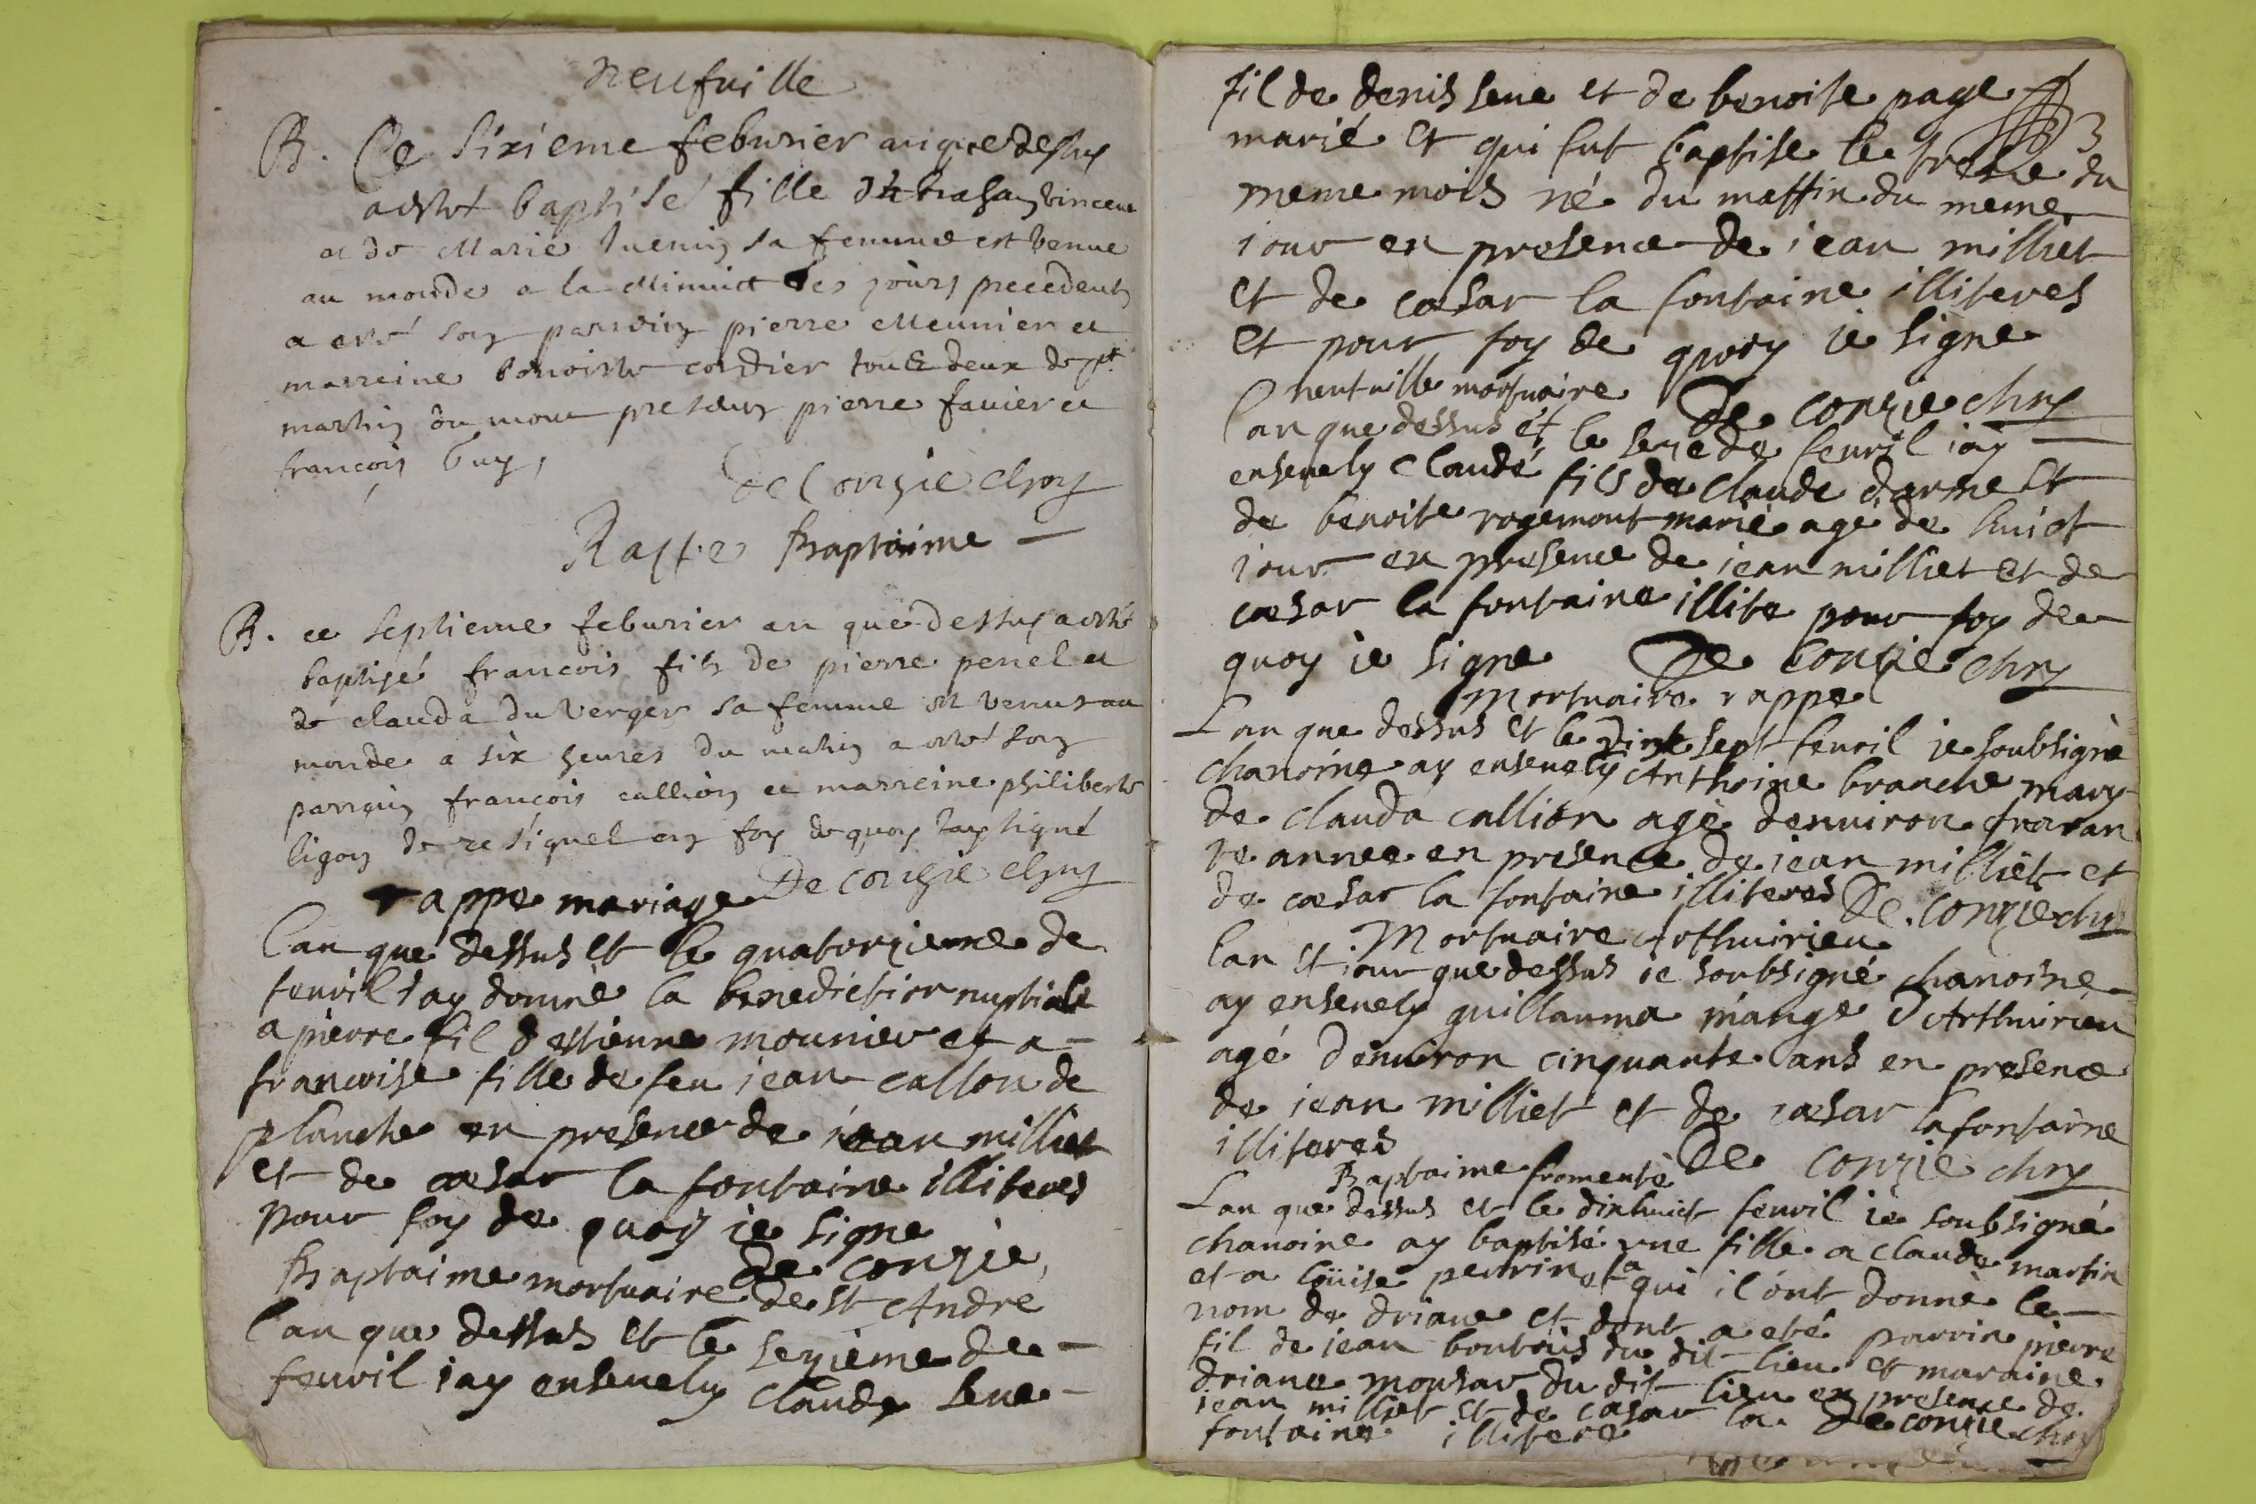 neufuille
B. Ce sixieme feburier an que dessus
a esté baptisé fille vincent
et de Marie sa femme est venue
au monde a la Minuict jours precedents
a esté son parrein pierre Meunier et
marreine benoiste cordier tous deux de st
martin du mont presents pierre fauier et
francois buy,
De Conzie chne
Rappe Baptaime
B. ce septieme feburier an que dessus a esté
baptisé francois fils de pierre perret et
de clauda du verger sa femme est venus au
monde a six heures du matin a esté son
parrein francois callion et marreine philiberte
ligon de en foy de quoy iay signé
De conzie chne
rappe mariage
lan que dessus et le quatorzieme de
feuril iay donné la benediction nuptiale
a pierre fil destienne mounier et a
francoise fille de feu iean callon de
planche en presence de iean milliet
et de cæsar la fontaine illiteres
pour foy de quoy ie signe
De conzie,
Baptaime mortuaire de st André
lan que dessus et le sezieme de
feuril iay enseuely claude seue
fil de denis seue et de benoite page
3
marié et qui fut baptise le treze du
meme mois né du mattin du meme
iour en presence de iean milliet
et de cæsar la fontaine illiteres
et pour foy de quoy ie signe
De conzie chne
neufuille mortuaire
lan que dessus et le seze de feuril iay
enseuely claude fils de claude darme et
de benoite rogemont marié agé de huict
iour en presence de iean milliet et de
cæsar la fontaine illite pour foy de
quoy ie signe De conzie chne
Mortuaire rappe
Lan que dessus et le dix sept feuril ie soubsigné
chanoine ay enseuely Anthoine branche mary
de clauda callion agé denuiron quaran
te annee en presence de iean milliet et
de cæsar la fontaine illiteres De conzie chne
Mortuaire Arthuirieu
lan et iour que dessus ie soubsigné chanoine
ay enseuely guillauma mange D Arthuirieu
agé denuiron cinquante ans en presence
de iean milliet et de cæsar lafontaine
illiteres De conzie chne
Baptaime fromente
Lan que dessus et le dixhuict feuril ie soubsigné
chanoine ay baptisé vne fille a claude martin
et a loüise perrin a qui il ont donné le
nom de driane et dont a eté parrin pierre
fil de iean boutois du dit lieu et maraine
driane monsar du dit lieu en presence de
iean milliet et de cæsar la
fontaine illitere De conzie chne